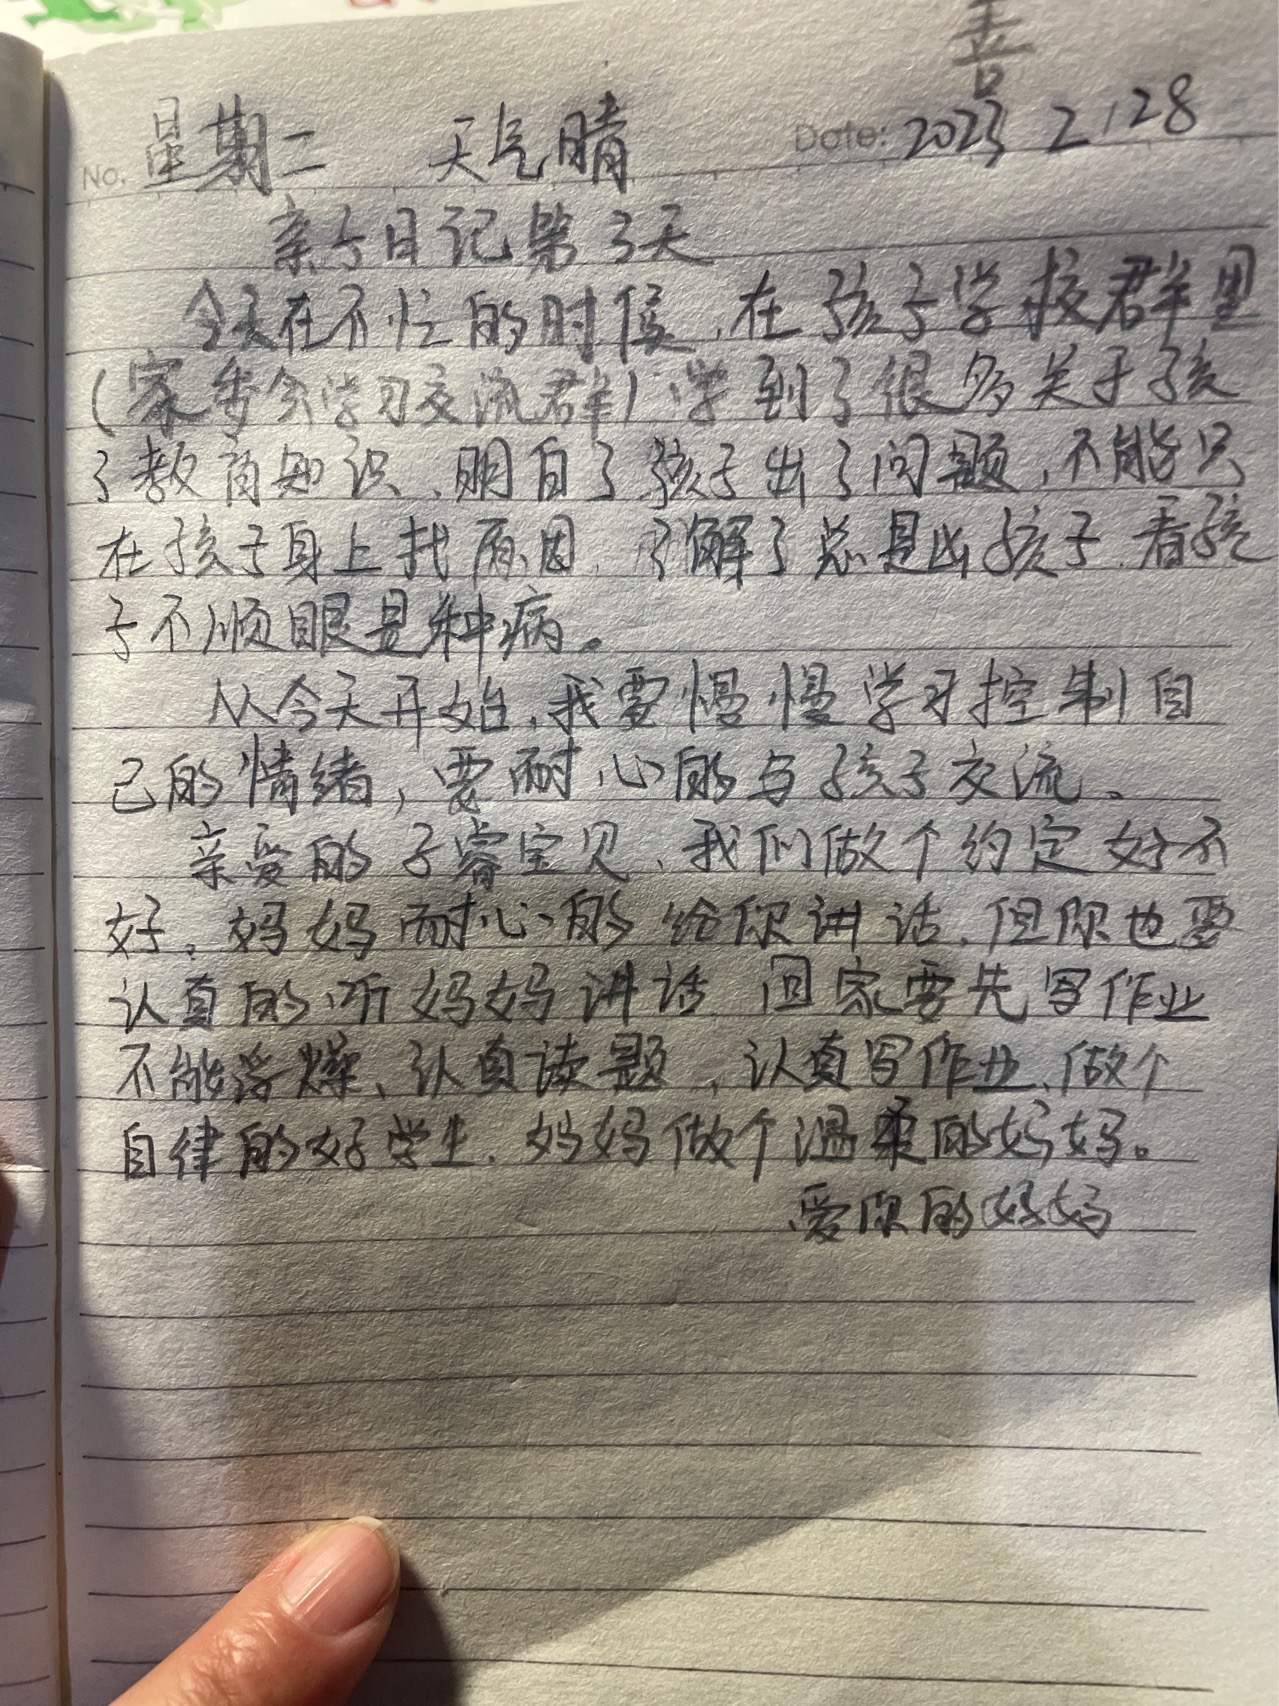 善
No. 星期二 天气晴 Date: 2023 2.28
亲子日记第3天
今天在不忙的时候,在孩子学校群里
(家委会学习交流群)学到了很多关于孩
子教育知识,明白了孩子出了问题,不能只
在孩子身上找原因,了解了总是凶孩子,看孩
子不顺眼是种病。
从今天开始,我要慢慢学习控制自
己的情绪,要耐心的与孩子交流。
亲爱的子睿宝贝,我们做个约定好不
好。妈妈耐心的给你讲话,但你也要
认真的听妈妈讲话 回家要先写作业
不能浮燥、认真读题,认真写作业、做个
自律的好学生.妈妈做个温柔的妈妈。
爱你的妈妈